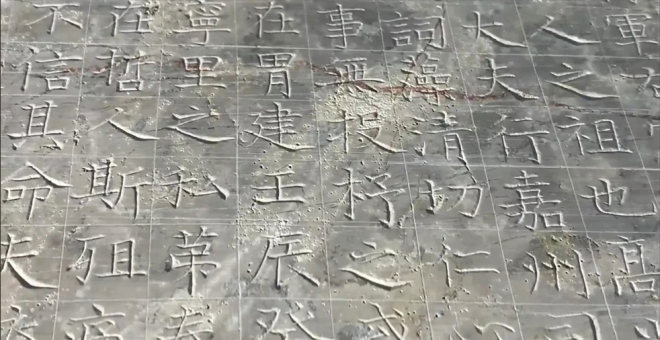 軍右
人之祖也高
大夫行嘉州司
詞藻清切仁心
事無投杼之
在胃建壬辰癸
寧里之私第
在哲人斯殂
不信其命夫